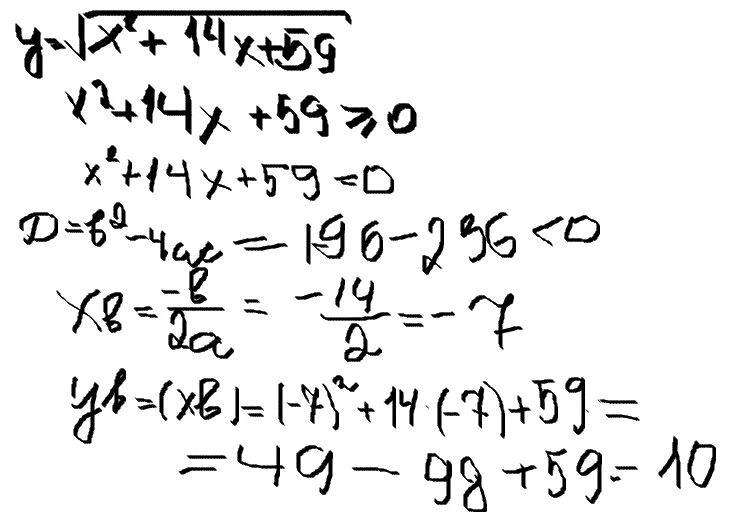 y=√x²+14x+59
x²+14x+59⩾0
x²+14x+59=0
D=b²-4ac=196-236<0
xв=-b/2a=-14/2=-7
yв=(xв)=(-7)²+14·(-7)+59=
=49-98+59=10